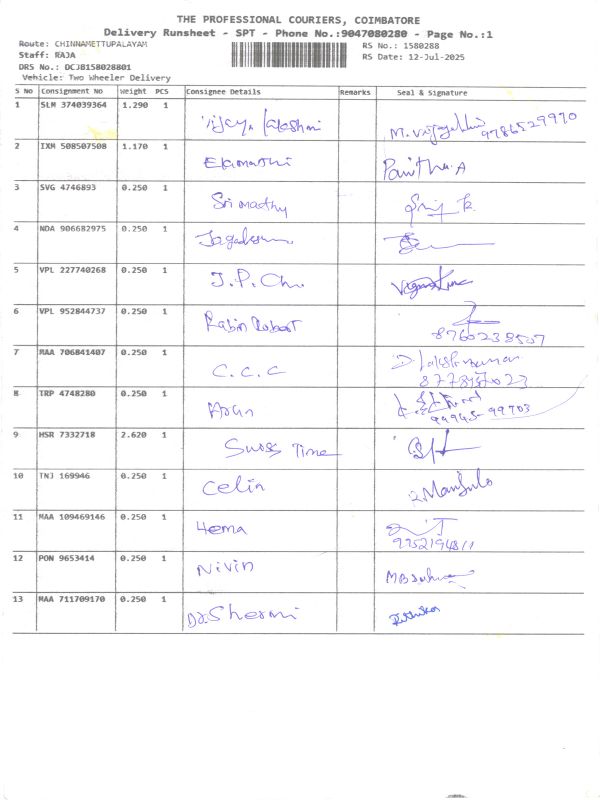 THE PROFESSIONAL COURIERS, COIMBATORE
Delivery Runsheet - SPT - Phone No.:9047080280 - Page No.:1
Route: CHINNAMETTUPALAYAM RS No.: 1580288
Staff: RAJA RS Date: 12-Jul-2025
DRS No.: DCJB158028801
Vehicle: Two Wheeler Delivery
S No Consignment No Weight PCS Consignee Details Remarks Seal & Signature
1 SLM 374039364 1.290 1 Vijaya lakshmi M. Vijayalakshmi
9786529970
2 IXM 508507508 1.170 1 Pavithra.A
3 SVG 4746893 0.250 1 Sri madhy
4 NDA 906682975 0.250 1
5 VPL 227740268 0.250 1 J.P.Ch.
6 VPL 952844737 0.250 1 Rabin Robert
8760238507
7 MAA 706841407 0.250 1 C.C.C
8 TRP 4748280 0.250 1 Arun
99945-99703
9 HSR 7332718 2.620 1 Swiss Time
10 TNJ 169946 0.250 1 Celin R.Manjula
11 MAA 109469146 0.250 1 Hema
9952194811
12 PON 9653414 0.250 1 Nivin
13 MAA 711709170 0.250 1 Dr.Shermi